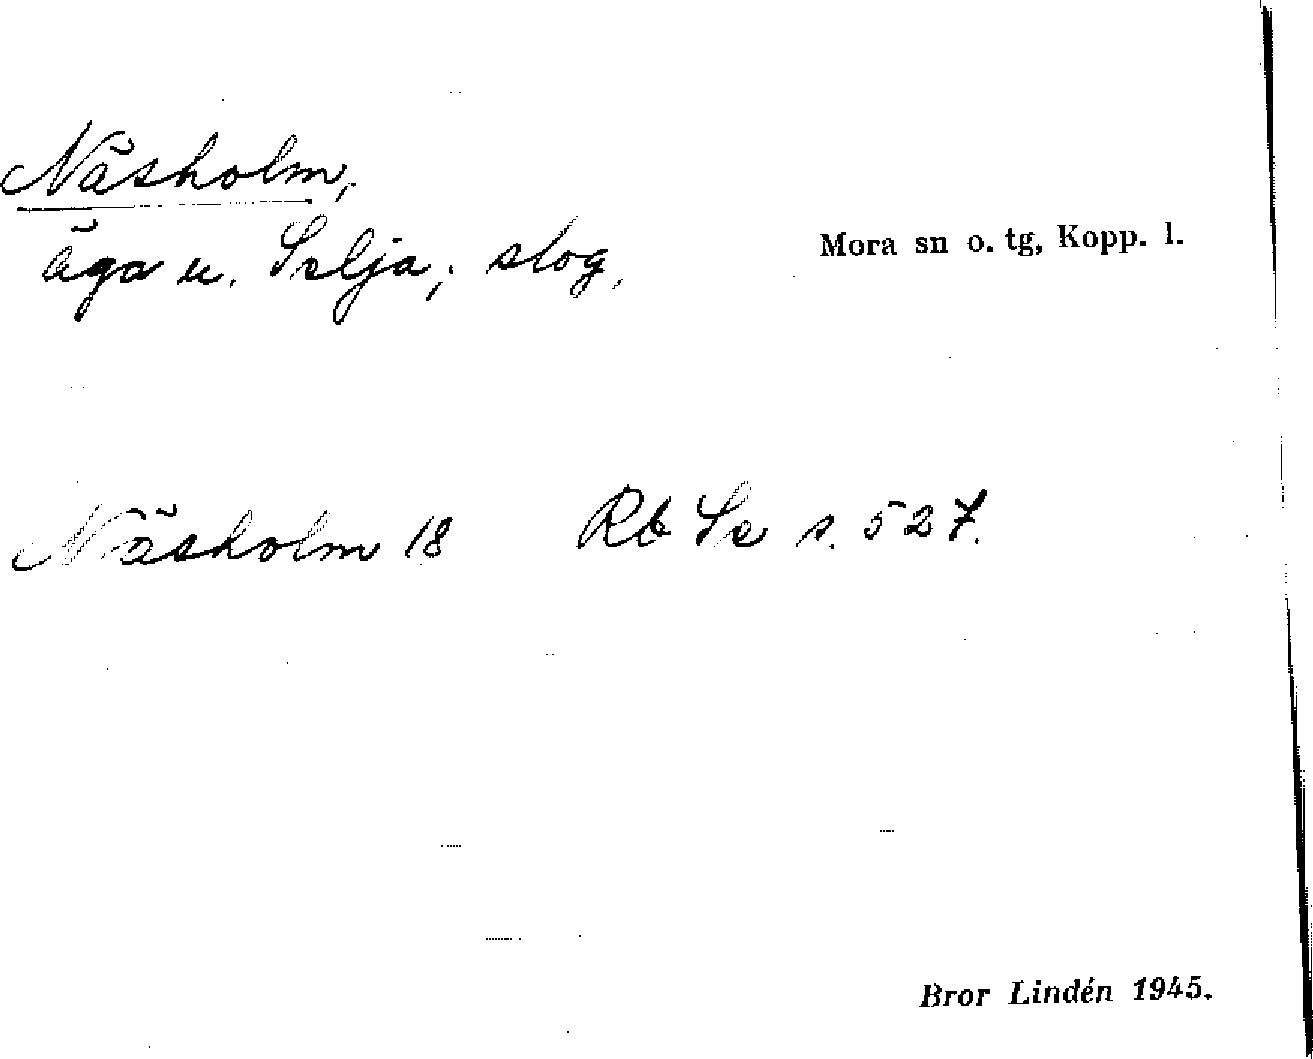 Näsholm,
äga u. Selja; slog,
Mora sn o. tg, Kopp. l.
Näsholm 18 Rb Se s. 527.
Bror Lindén 1945.